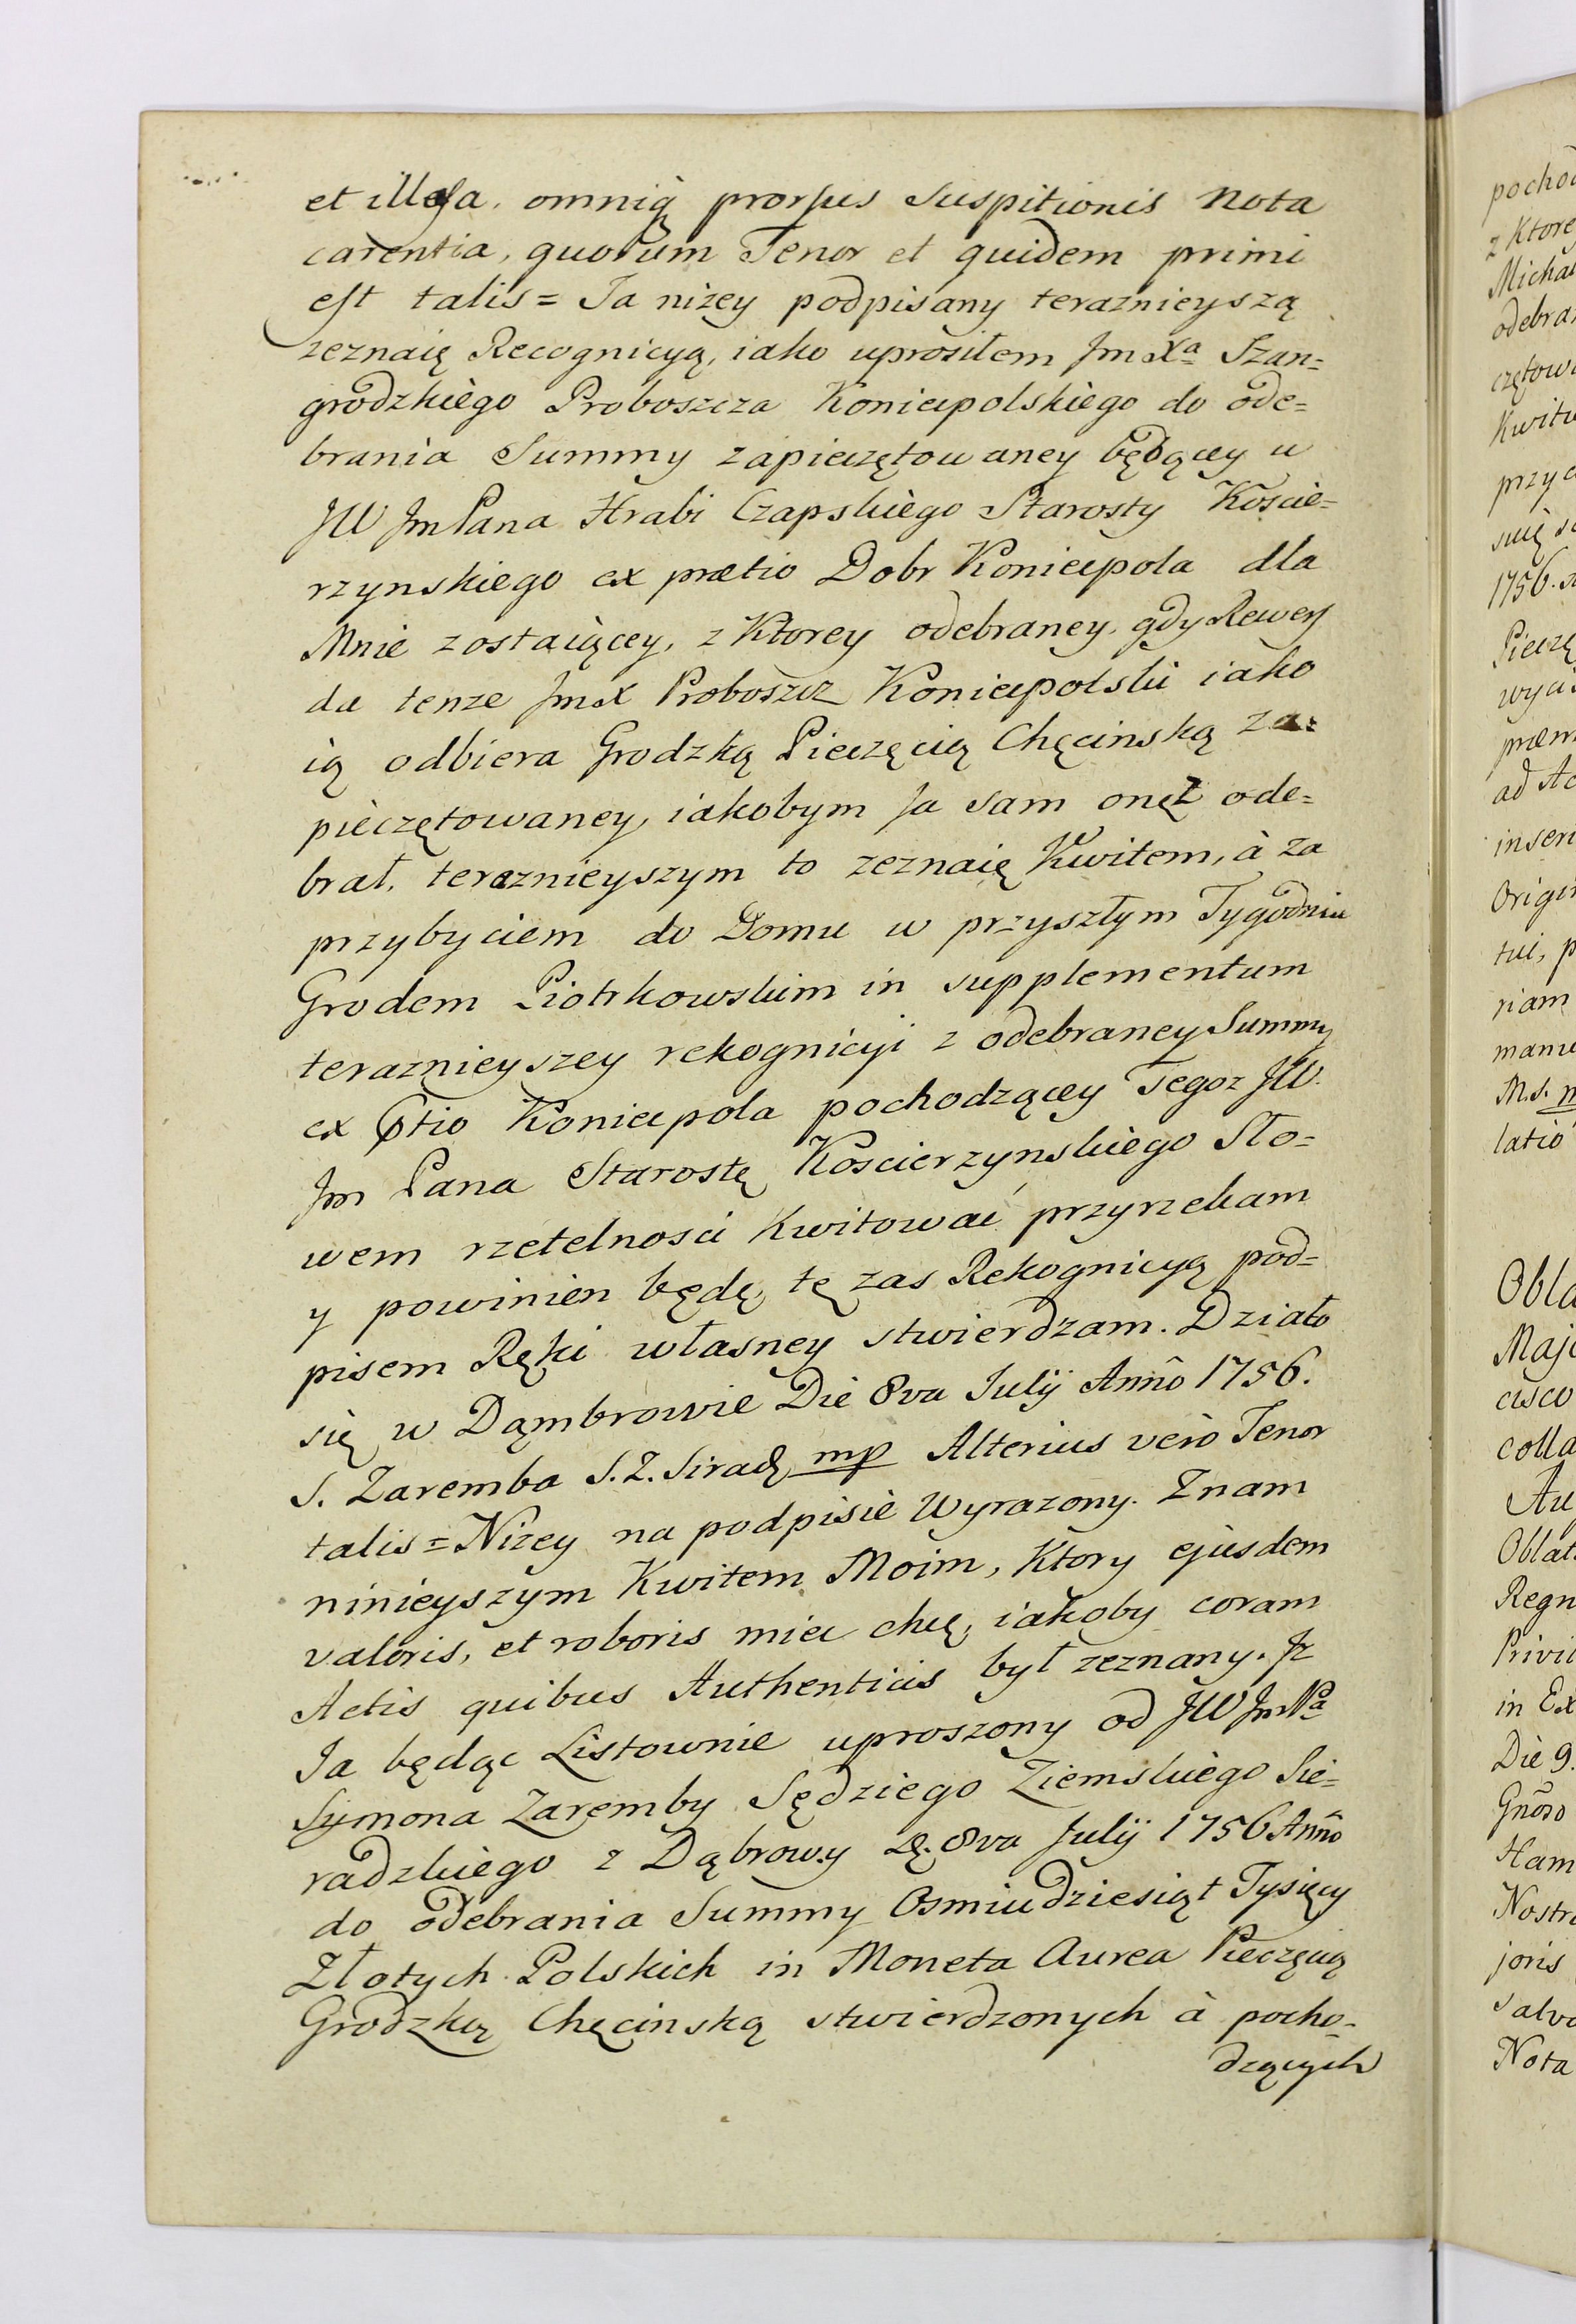 et illæsa, omniq; prorsus Suspitionis Nota
carentia, quorum Tenor et quidem primi
est talis = Ja niżey podpisany teraznieyszą
zeznaię Recognicyą, iako uprosiłem JmXa Szan=
grodzkiego Proboszcza Koniecpolskiego do ode=
brania Summy zapieczętowaney będącey u
JW JmPana Hrabi Czapskiego Starosty Koscie=
rzynskiego ex prætio Dobr Koniecpola dla
Mnie zostaiącey, z Ktorey odebraney, gdy Rewers
da tenze JmX Proboszcz Koniecpolski iako
ią odbiera Grodzką Pieczęcią Chęcinską za=
pieczętowaney, iakobym Ja sam onęż ode=
brał, teraznieyszym to zeznaię Kwitem, à za
przybyciem do Domu w przyszłym Tygodniu
Grodem Piotrkowskim in supplementum
teraznieyszey rekognicyi z odebraney Summy
ex ptio Koniecpola pochodzącey Tegoz JW.
Jm Pana Starostę Koscierzynskiego Sło=
wem rzetelnosci Kwitować przyrzekam
y powinien będę, tę zas Rekognicyą pod=
pisem Ręki własney stwierdzam. Działo
się w Dąmbrowie Die 8va Julij Anno 1756.
S. Zaremba S. Z. Sirad; mp Alterius vero Tenor
talis = Niżey na podpisie Wyrazony. Znam
ninieyszym Kwitem Moim, Ktory ejusdem
valoris, et roboris miec chcę, iakoby coram
Actis quibus Authenticis był zeznany. Jz
Ja będąc Listownie uproszony od JW JmPa
Symona Zaremby Sędziego Ziemskiego Sie=
radzkiego z Dąbrowy D. 8va Julij 1756 Anno
do odebrania Summy Osmiudziesiąt Tysięcy
Złotych Polskich in Moneta Aurea Pieczęcią
Grodzką Chęcinską stwierdzonych à pocho=
dzących
pochod
z Ktore
Micha
odebra
czętow
Kwitu
przy
1756.
Pieczę
wyci
præm
ad Ac
inser
Origi
tui, p
riam
manu
M.S.
latio
Obla
Maje
cisco
colla
Au
Oblat
Regn
Privi
in Ex
Die 9.
Gnoso
Ham
Nostr
joris
salv
Nota